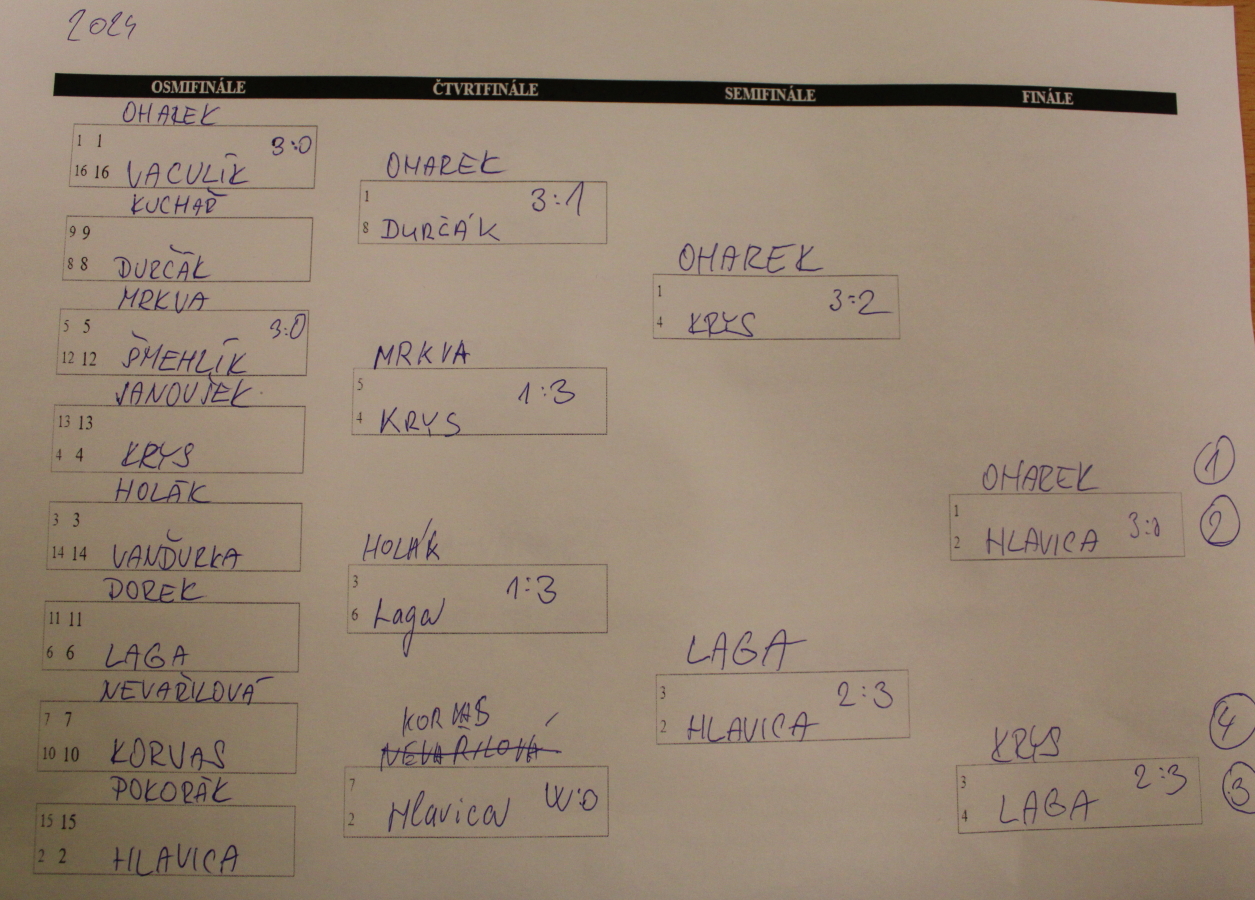 2024
OSMIFINÁLE ČTVRTFINÁLE SEMIFINÁLE FINÁLE
OHAREK
1 1 3:0
16 16 VACULÍK
KUCHAŘ
9 9
8 8 DURČÁK
MRKVA
5 5 3:0
12 12 ŠMEHLÍK
JANOUŠEK
13 13
4 4 KRYS
HOLÁK
3 3
14 14 VANĎURKA
DOREK
11 11
6 6 LAGA
NEVAŘILOVÁ
7 7
10 10 KORVAS
POKORÁK
15 15
2 2 HLAVICA
OHAREK
1 3:1
8 DURČÁK
MRKVA
5 1:3
4 KRYS
HOLÁK
3 1:3
6 Laga
KORVAS
NEVAŘILOVÁ
7 W:0
2 Hlavica
OHAREK
1 3:2
4 KRYS
LAGA
3 2:3
2 HLAVICA
OHAREK 1
1 3:0 2
2 HLAVICA
KRYS 4
3 2:3 3
4 LAGA